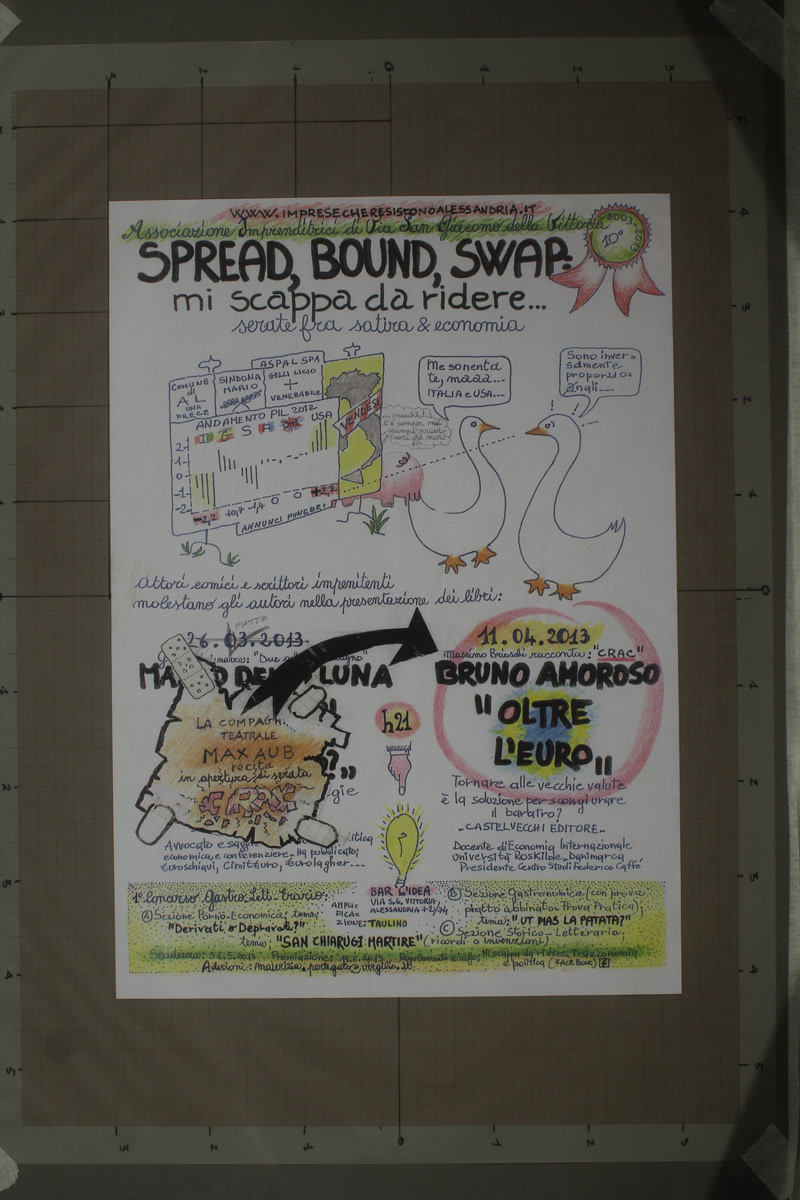 WWW.IMPRESECHERESISTONOALESSANDRIA.IT
Associazione Imprenditrici di Via San Giacomo della Vittoria
2003-2013
10°
SPREAD, BOUND, SWAP:
mi scappa da ridere...
serate fra satira & economia
COMUNE
di
AL
UNA
PRECE
SINDONA
MARIO
ASPAL SPA
GELLI LICIO
+
VENERABILE
ANDAMENTO PIL 2012
G S USA
2
1
0
-1
-2
-2,2 +0,7 -1,4 0 0 +2,2
ANNUNCI FUNEBRI
VENDESI
Me sonenta
te, maaa...
ITALIA e USA...
Sono inver=
samente
proporzio=
nali...
Attori comici e scrittori impenitenti
molestano gli autori nella presentazione dei libri:
FATTO
26.03.2013
"Due
MA O DE LUNA
LA COMPAGN.
TEATRALE
MAX AUB
recita
in apertura di serata
CRAC
?"
gie
Avvocato e
economica e conferenziere. Ha pubblicato:
Euroschiavi, CimitEuro, Eurolagher...
h21
11.04.2013
Massimo Brioschi racconta: "CRAC"
BRUNO AMOROSO
"OLTRE
L'EURO"
Tornare alle vecchie valute
è la soluzione per scongiurare
il baratro?
-CASTELVECCHI EDITORE-
Docente di Economia Internazionale
Università Roskilde-Danimarca
Presidente Centro Studi Federico Caffé
1° Concorso Gastro-Lett-Erario:
Ⓐ Sezione Porno-Economica; tema:
"Derivati o Depravati?"
BAR L'IDEA
VIA S.G. VITTORIA,
ALESSANDRIA
AMPLI=
FICA=
ZIONE: TAULINO
Ⓑ Sezione Gastronomica (con prova
piatto abbinato: Prova Pratica);
tema: "UT PIAS LA PATATA?"
Ⓒ Sezione Storico-Letteraria,
tema: "SAN CHIARUGI MARTIRE" (ricordi o invenzioni)
Scadenza: 31.5.2013 Premiazione: Regolamento e info: Mi scappa da ridere, fra economia
Adesioni: e politica (FACEBOOK)